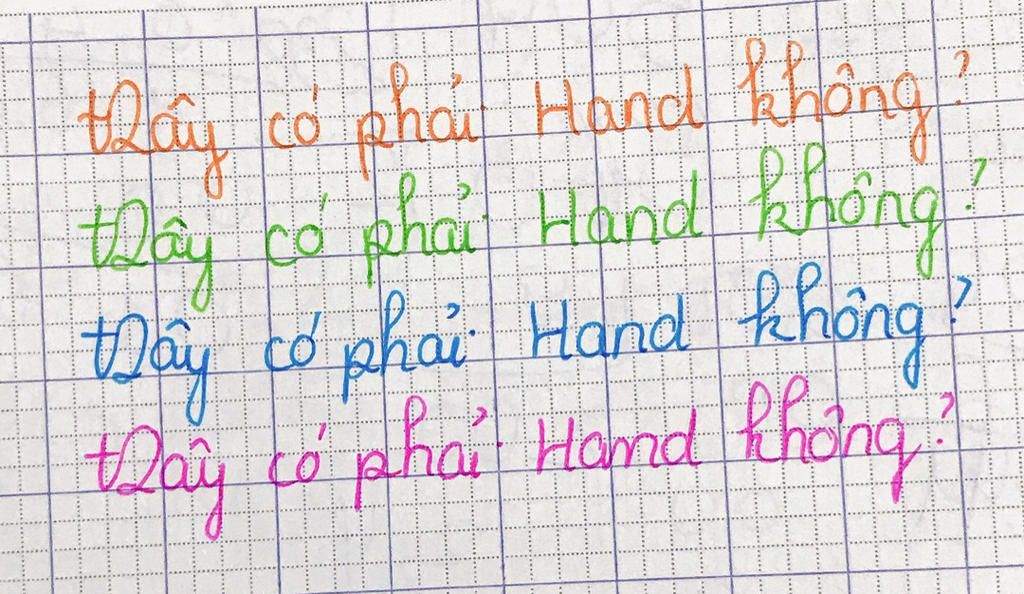 Đây có phải Hand không?
Đây có phải Hand không?
Đây có phải Hand không?
Đây có phải Hand không?